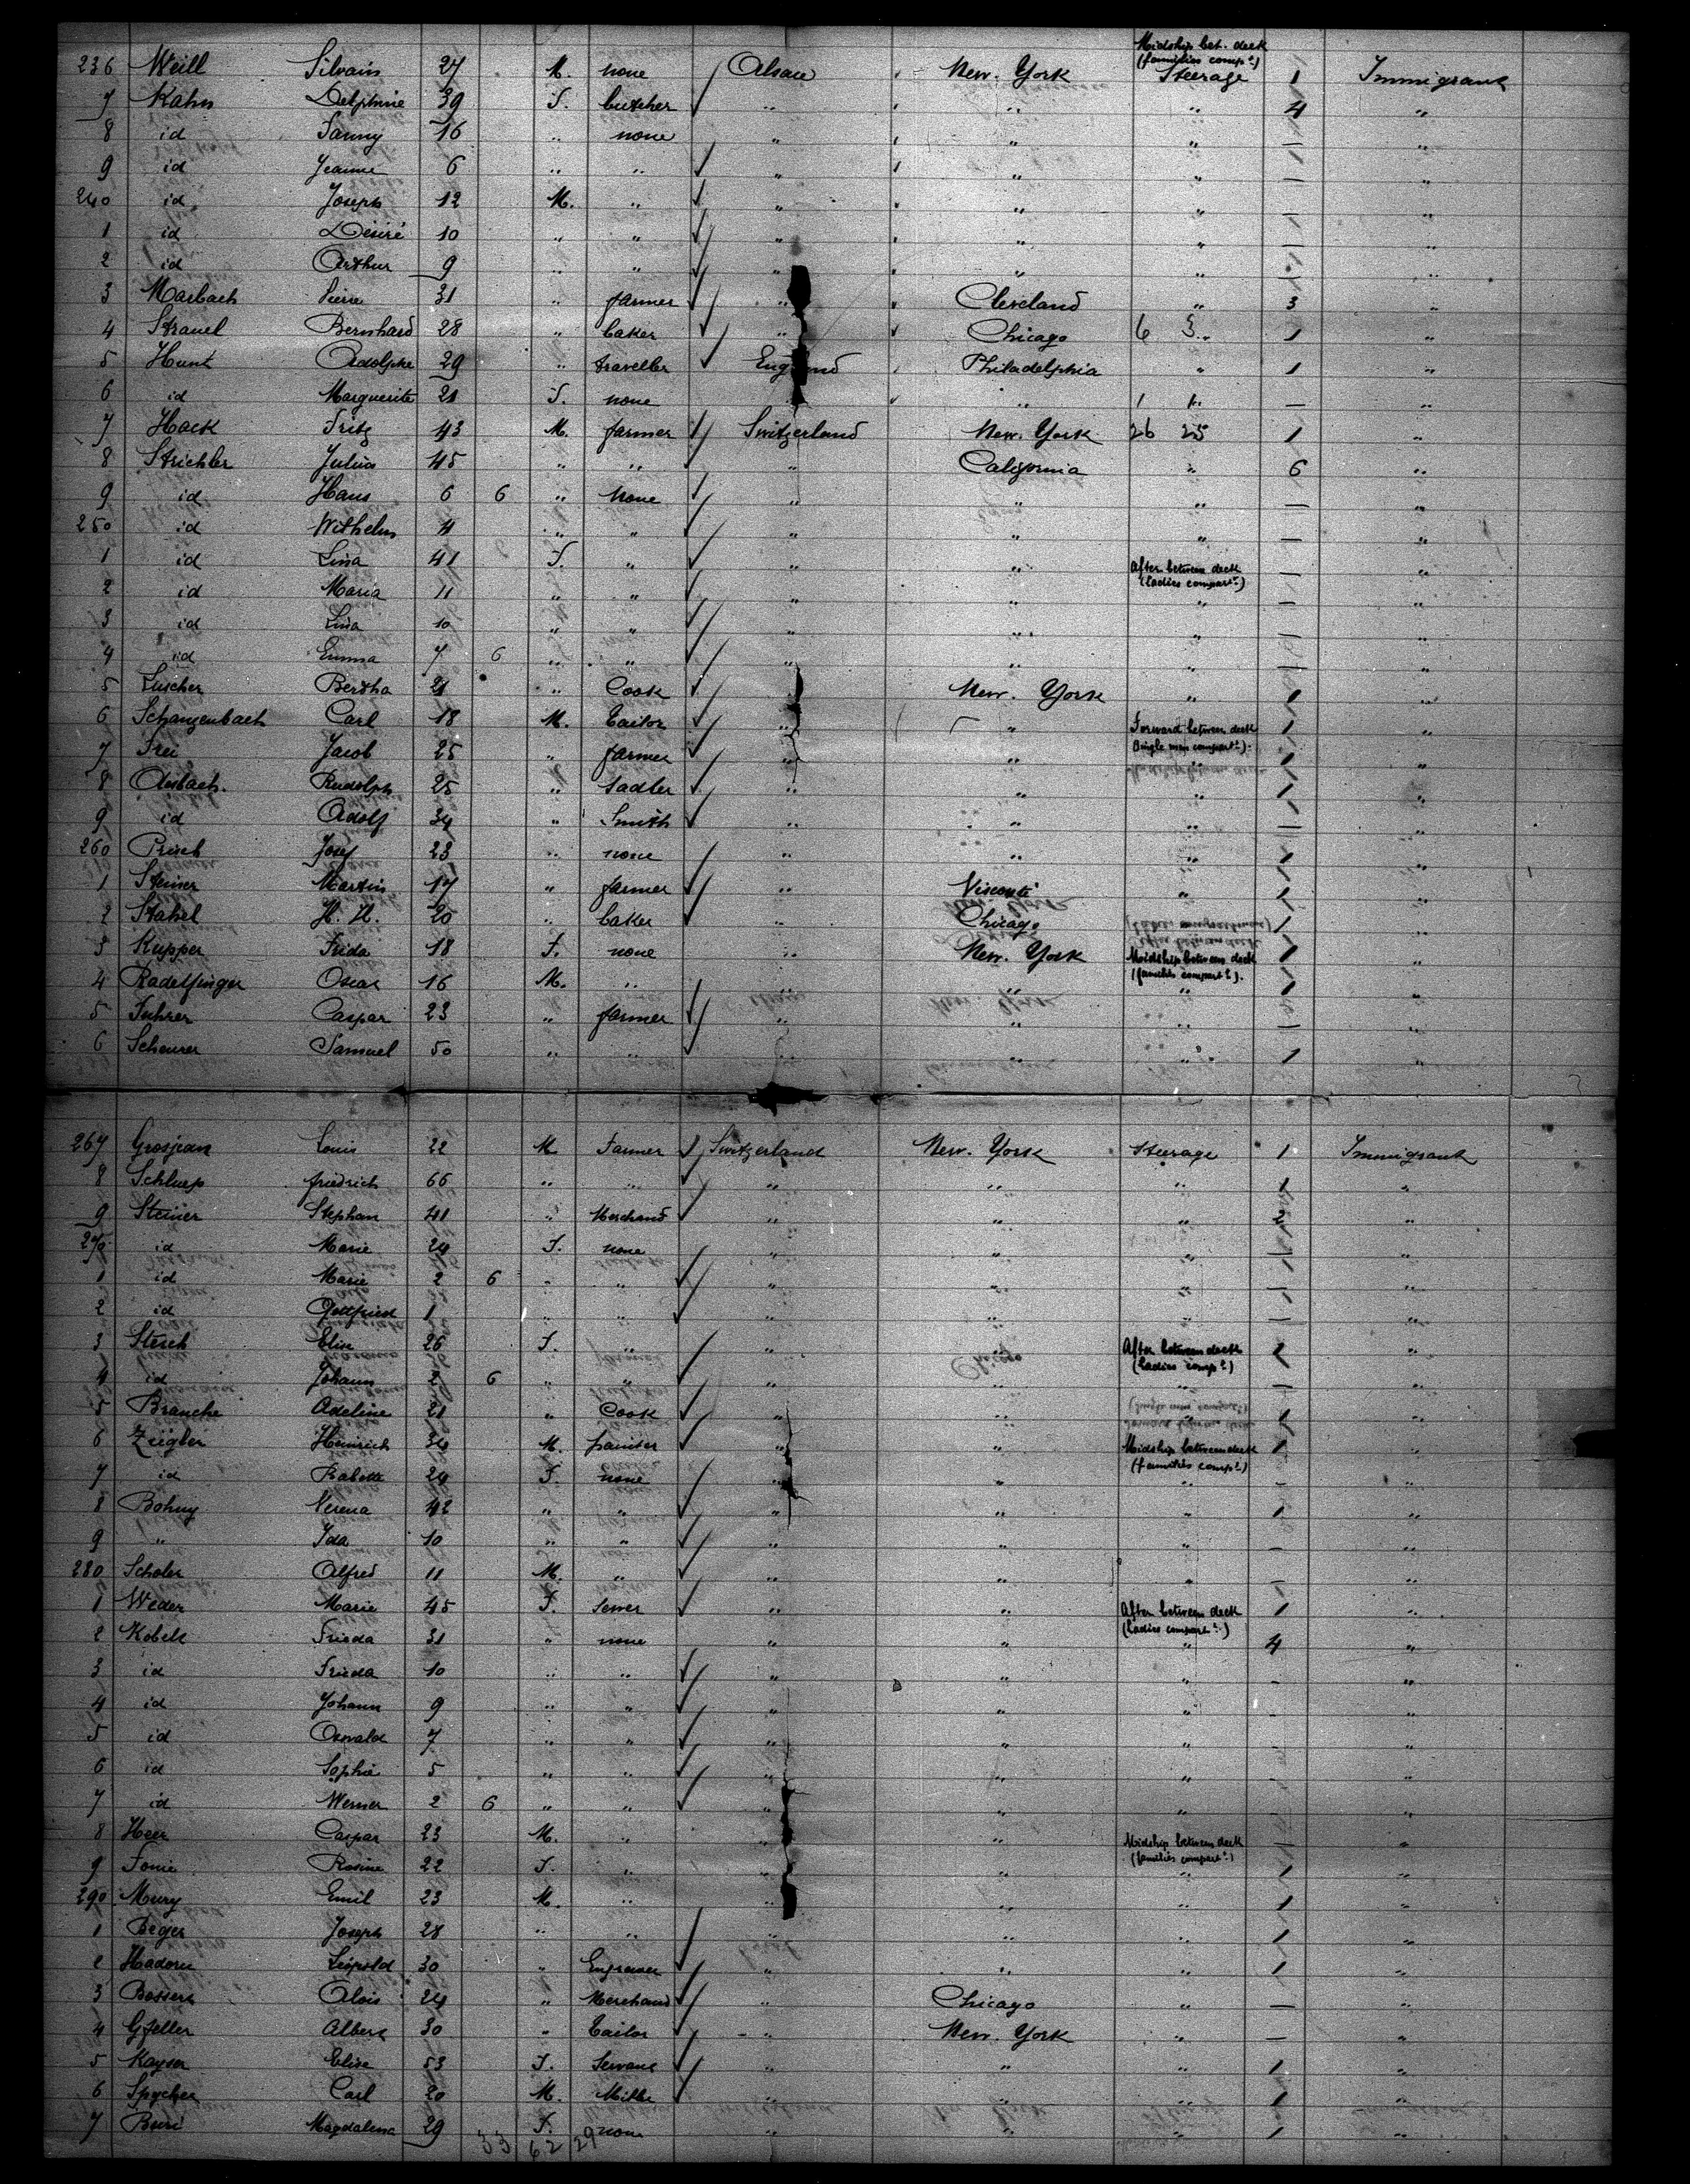 Midship bet. deck
(families compt)
236 Weill Silvain 27 M. none Alsace New. York Steerage 1 Immigrant
7 Kahn Delphine 39 F. butcher " " " 4 "
8 id Fanny 16 " none " " " — "
9 id Jeanne 6 " " " " " — "
240 id Joseph 12 M. " " " " — "
1 id Désiré 10 " " " " " — "
2 id Arthur 9 " " " " " — "
3 Marbach Pierre 31 " farmer " Cleveland " 3 "
4 Straucl Bernhard 28 " baker " Chicago 6 3 " 1 "
5 Hunt Adolphe 29 " traveller England Philadelphia " 1 "
6 id Marguerite 21 F. none " 1 1 — "
7 Hack Fritz 43 M. farmer Switzerland New. York 26 25 1 "
8 Strichler Julius 45 " " " California " 6 "
9 id Hans 6 6 " none " " " — "
250 id Wilhelm 4 " " " " " — "
1 id Lina 41 F. " " " After between deck — "
(ladies compart.)
2 id Maria 11 " " " " " — "
3 id Lina 10 " " " " " — "
4 id Emma 7 6 " " " " " — "
5 Luscher Bertha 21 " Cook " New. York " 1 "
6 Schangenbach Carl 18 M. tailor " " Forward between deck 1 "
(Single men compart.)
7 Frei Jacob 25 " farmer " " " 1 "
8 Aesbach. Rudolph 25 " sadler " " " 1 "
9 id Adolf 34 " Smith " " " — "
260 Josef 23 " none " " " 1 "
1 Steiner Martin 17 " farmer " Visconti " 1 "
2 Stahel H. H. 20 " baker " Chicago 1 "
3 Kupper Frida 18 F. none " New. York Midship between deck 1 "
(families compart.).
4 Radelfinger Oscar 16 M. " " " " 1 "
5 Fuhrer Caspar 23 " farmer " " " — "
6 Scheurer Samuel 50 " " " " " 1 "
267 Grosjean Louis 22 M Farmer Switzerland New. York Steerage 1 Immigrant
8 Schluep friedrich 66 " " " " " 1 "
9 Steiner Stephan 41 " Merchand " " " 2 "
270 id Marie 24 F. none " " " — "
1 id Marie 2 6 " " " " " — "
2 id Gottfried 1 " " " " " — "
3 Stesch Elise 26 F. " " " After between deck 1 "
(ladies comp.)
4 id Johann 2 6 " " " " " — "
5 Branche Adeline 21 " Cook " " " 1 "
6 Zeigler Heinrich 34 M. painter " " Midship between deck 1 "
(families comp.)
7 id Babette 24 F. none " " " — "
8 Bohny Verena 42 " " " " " 1 "
9 " Ida 10 " " " " " — "
280 Scholer Alfred 11 M. " " " " — "
1 Weder Marie 45 F. sewer " " After between deck 1 "
(ladies compart.)
2 Kobelt Frieda 31 " none " " " 4 "
3 id Frieda 10 " " " " " — "
4 id Johann 9 " " " " " — "
5 id Oswald 7 " " " " " — "
6 id Sophie 5 " " " " " — "
7 id Werner 2 6 " " " " " — "
8 Heer Caspar 23 M. " " " Midship between deck — "
(families compart.)
9 Rosine 22 F. " " " " 1 "
290 Mury Emil 23 M. " " " " 1 "
1 Beger Joseph 28 " " " " " 1 "
2 Hadorn Léopold 30 " Engraver " " " 1 "
3 Bossert Alois 24 " Merchand " Chicago " — "
4 Gfeller Albert 30 " tailor " New. York " — "
5 Kayser Elise 53 F. Servant " " " 1 "
6 Spycher Carl 20 M. Miller " " " 1 "
7 Buri Magdalena 29 F. none " " " 1 "
33 62 29